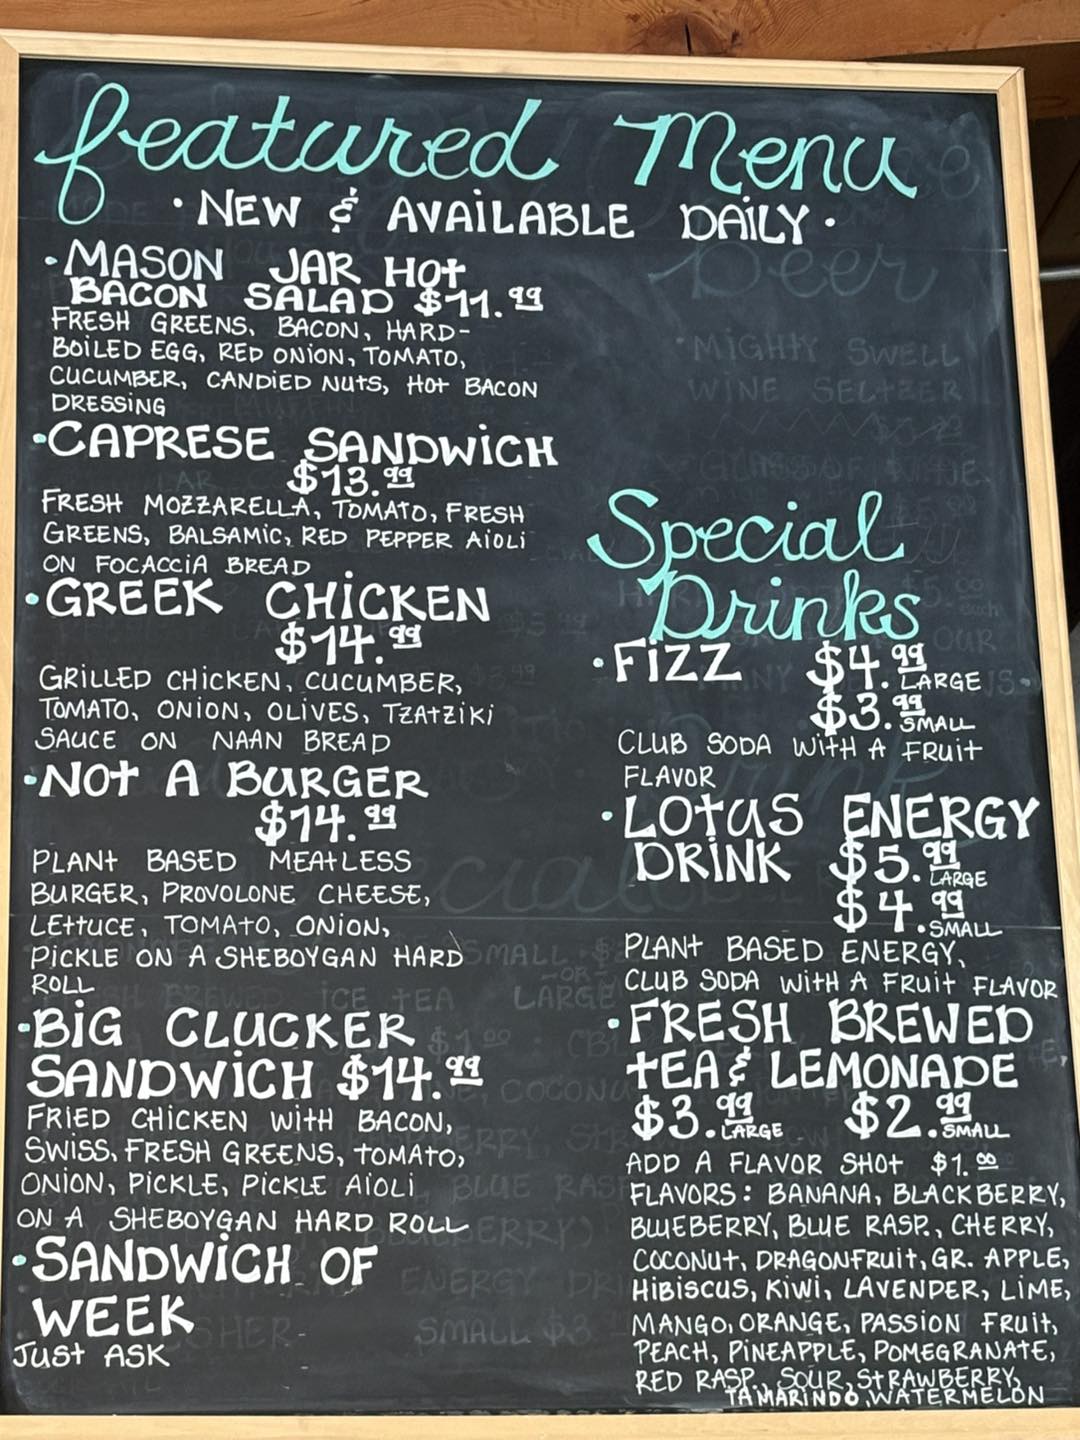 featured Menu
• NEW & AVAILABLE DAILY •
• MASON JAR HOT
BACON SALAD $11.99
FRESH GREENS, BACON, HARD-
BOILED EGG, RED ONION, TOMATO,
CUCUMBER, CANDIED NUTS, HOT BACON
DRESSING
• CAPRESE SANDWICH
$13.99
FRESH MOZZARELLA, TOMATO, FRESH
GREENS, BALSAMIC, RED PEPPER AIOLI
ON FOCACCIA BREAD
• GREEK CHICKEN
$14.99
GRILLED CHICKEN, CUCUMBER,
TOMATO, ONION, OLIVES, TZATZIKI
SAUCE ON NAAN BREAD
• NOT A BURGER
$14.99
PLANT BASED MEATLESS
BURGER, PROVOLONE CHEESE,
LETTUCE, TOMATO, ONION,
PICKLE ON A SHEBOYGAN HARD
ROLL
• BIG CLUCKER
SANDWICH $14.99
FRIED CHICKEN WITH BACON,
SWISS, FRESH GREENS, TOMATO,
ONION, PICKLE, PICKLE AIOLI
ON A SHEBOYGAN HARD ROLL
• SANDWICH OF
WEEK
JUST ASK
Beer
• MIGHTY SWELL
WINE SELTZER
Special
Drinks
• FIZZ $4.99 LARGE
$3.99 SMALL
CLUB SODA WITH A FRUIT
FLAVOR
• LOTUS ENERGY
DRINK $5.99 LARGE
$4.99 SMALL
PLANT BASED ENERGY,
CLUB SODA WITH A FRUIT FLAVOR
• FRESH BREWED
TEA & LEMONADE
$3.99 LARGE $2.99 SMALL
ADD A FLAVOR SHOT $1.00
FLAVORS: BANANA, BLACKBERRY,
BLUEBERRY, BLUE RASP., CHERRY,
COCONUT, DRAGONFRUIT, GR. APPLE,
HIBISCUS, KIWI, LAVENDER, LIME,
MANGO, ORANGE, PASSION FRUIT,
PEACH, PINEAPPLE, POMEGRANATE,
RED RASP., SOUR, STRAWBERRY,
TAMARINDO, WATERMELON